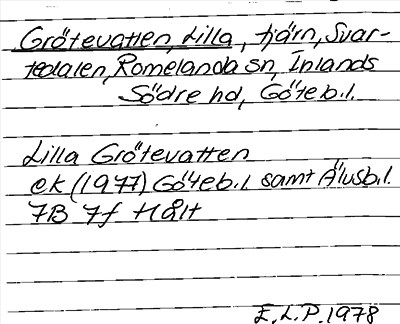 Grötevatten, Lilla, tjärn, Svar-
tedalen, Romelanda sn, Inlands
Södre hd, Göteb.l.
Lilla Grötevatten
ek (1977) Göteb.l samt Älvsb.l.
7B 7f Hålt
E.L.P. 1978